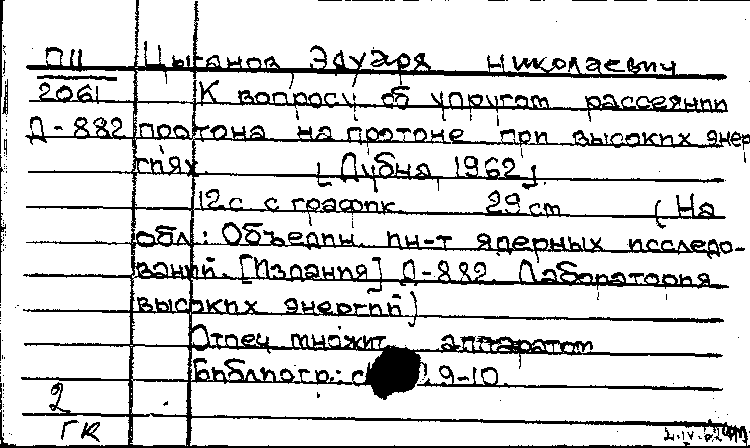 П11 Цыганов, Эдуард Николаевич
2061 К вопросу об упругом рассеянии
Д-882 протона на протоне при высоких энер-
гиях. [Дубна, 1962].
12 с. с график. 29 cm. (На
обл.: Объедин. ин-т ядерных исследо-
ваний. [Издания] Д-882. Лаборатория
высоких энергий)
Отпеч. множит. аппаратом
Библиогр.: с. 9-10.
2
ГК